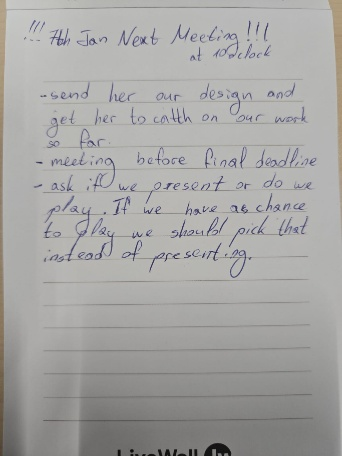 !!! 7th Jan Next Meeting!!!
at 10 o'clock
- send her our design and
get her to catch on our work
so far.
- meeting before final deadline
- ask if we present or do we
play. If we have as chance
to play we should pick that
instead of presenting.
LiveWall